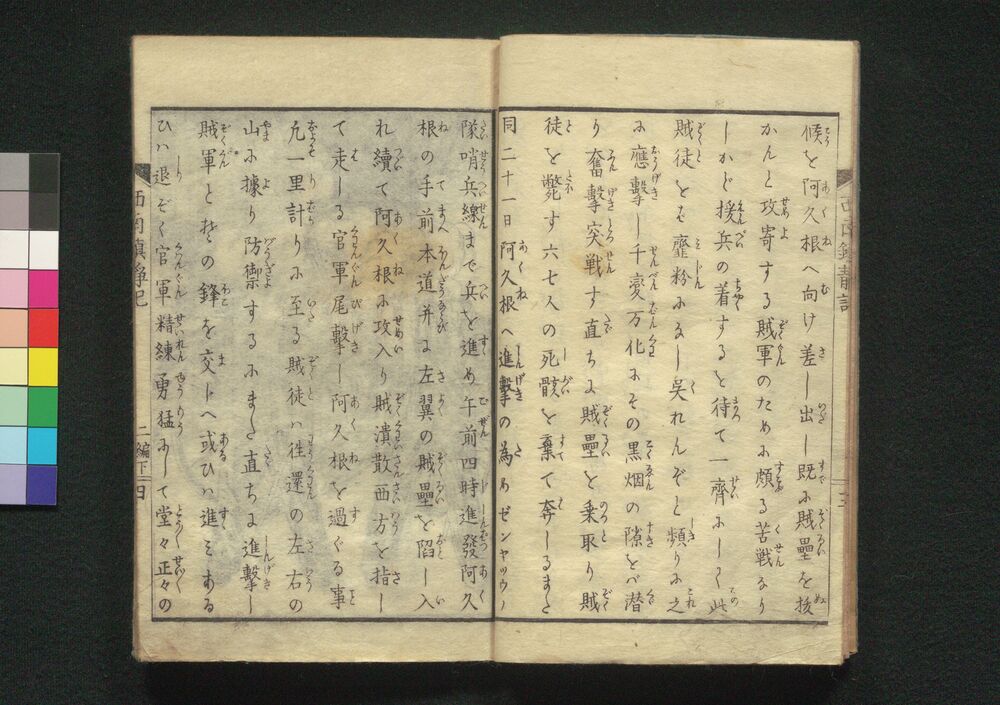 候を阿久根へ向け差し出し既に賊壘を拔
かんと攻寄する賊軍のために頗る苦戦なり
しかど援兵の着するを待て一齊にしく此
賊徒をバ韲粉になし呉れんぞと頻りに之
に應撃し千変万化にその黒烟の隙をバ潜
り奮撃突戦す直ちに賊壘を乗取り賊
徒を斃す六七人の死骸を棄て奔しるまた
同二十一日阿久根へ進撃の為め
隊哨兵線まで兵を進め午前四時進發阿久
根の手前本道并に左翼の賊壘を陷し入
れ續て阿久根に攻入り賊潰散西方を指し
て走しる官軍尾撃し阿久根を過ぐる事
凡一里計りに至る賊徒ハ徃還の左右の
山に據り防禦するにまた直ちに進撃し
賊軍と其の鋒を交トへ或ひハ進ミある
ひハ退ぞく官軍精練勇猛にして堂々正々の
西南鎮静記
二編下
四